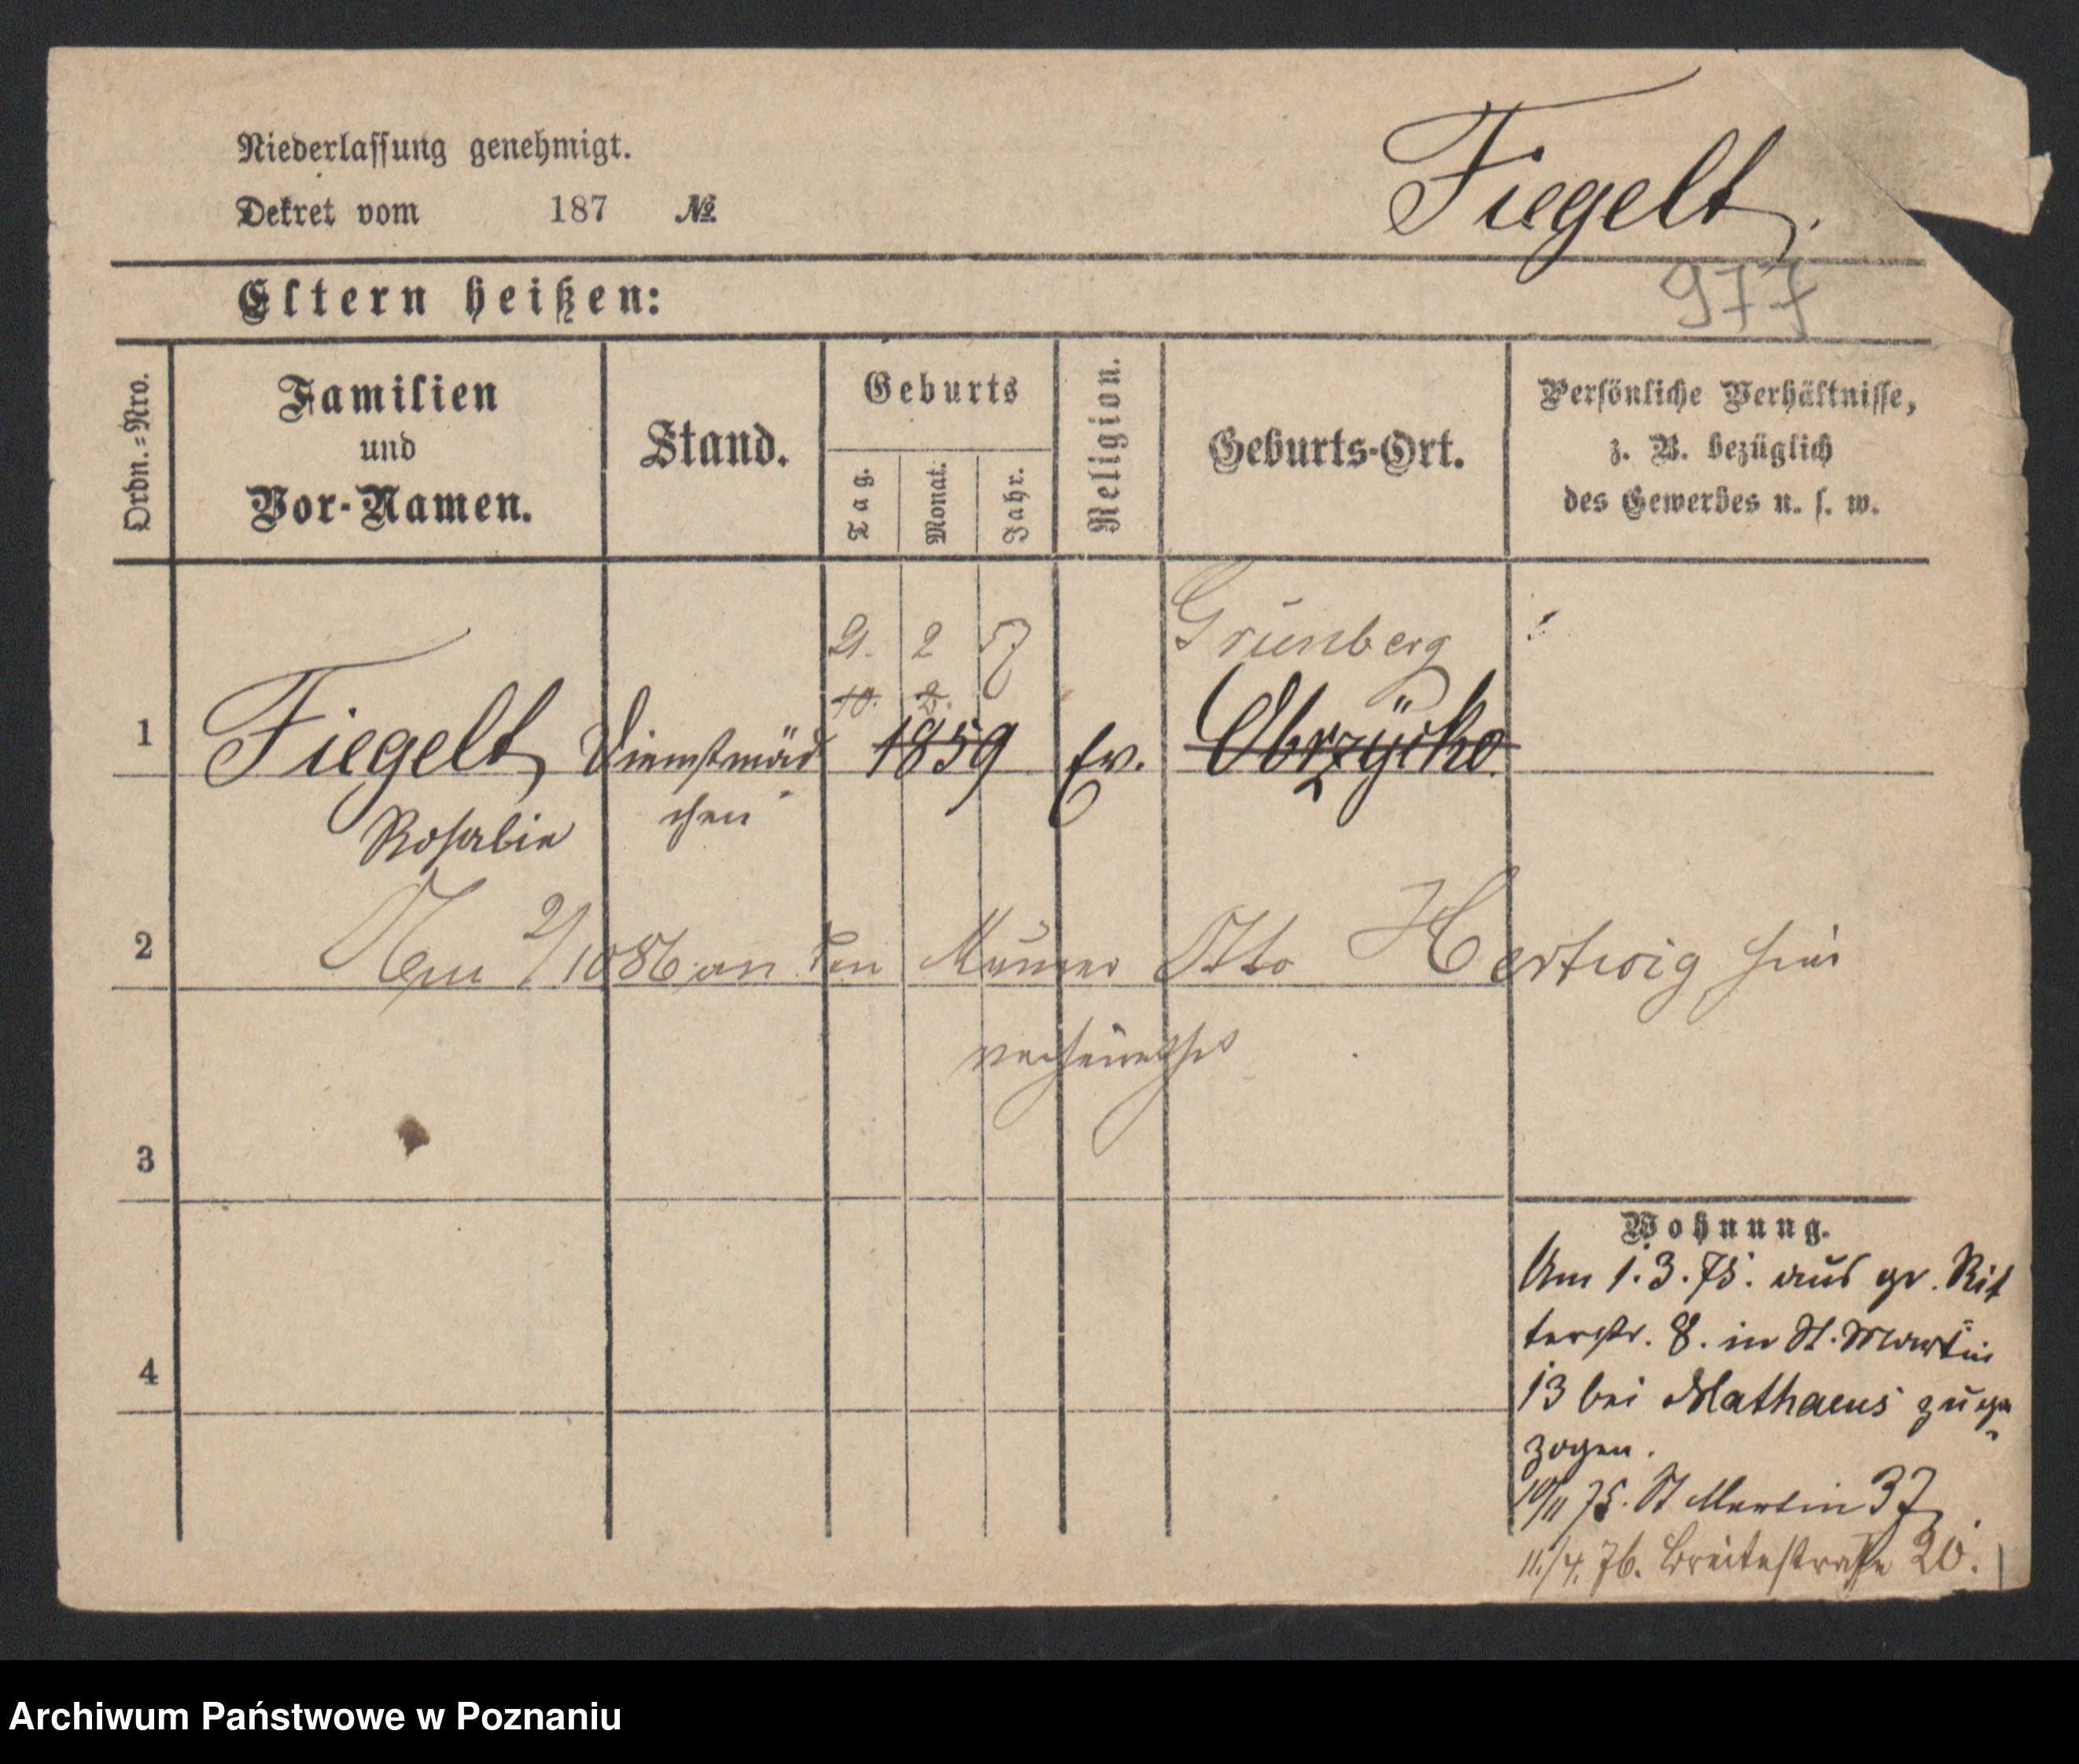 Niederlassung genehmigt.
Dekret vom 187 №
Fiegelt.
977
Eltern heißen:
Ordn.=Nro.
Familien
und
Vor-Namen.
Stand.
Geburts
Tag.
Monat.
Jahr.
Religion.
Geburts-Ort.
Persönliche Verhältnisse,
z. B. bezüglich
des Gewerbes u. s. w.
21. 2 57 Grünberg
10. 2.
1 Fiegelt Dienstmäd 1859 Ev. Obrzycko.
Rosalie chen
2 Am 2/10 86 an den Maurer Otto Hertwig hier
verheirathet
3
4
Wohnung.
Am 1.3.75. aus gr. Rit
terstr. 8. in St. Martin
13 bei Mathaeus zuge
zogen.
10/11 75. St Martin 37
11./4. 76. Breitestraße 20.
Archiwum Państwowe w Poznaniu